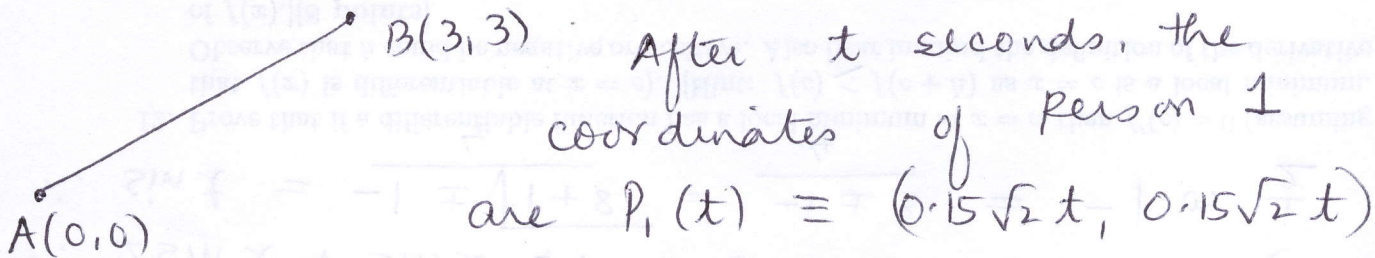 B(3,3)
After t seconds the
coordinates of person 1
A(0,0)
are P₁(t) ≡ (0.15√2 t, 0.15√2 t)